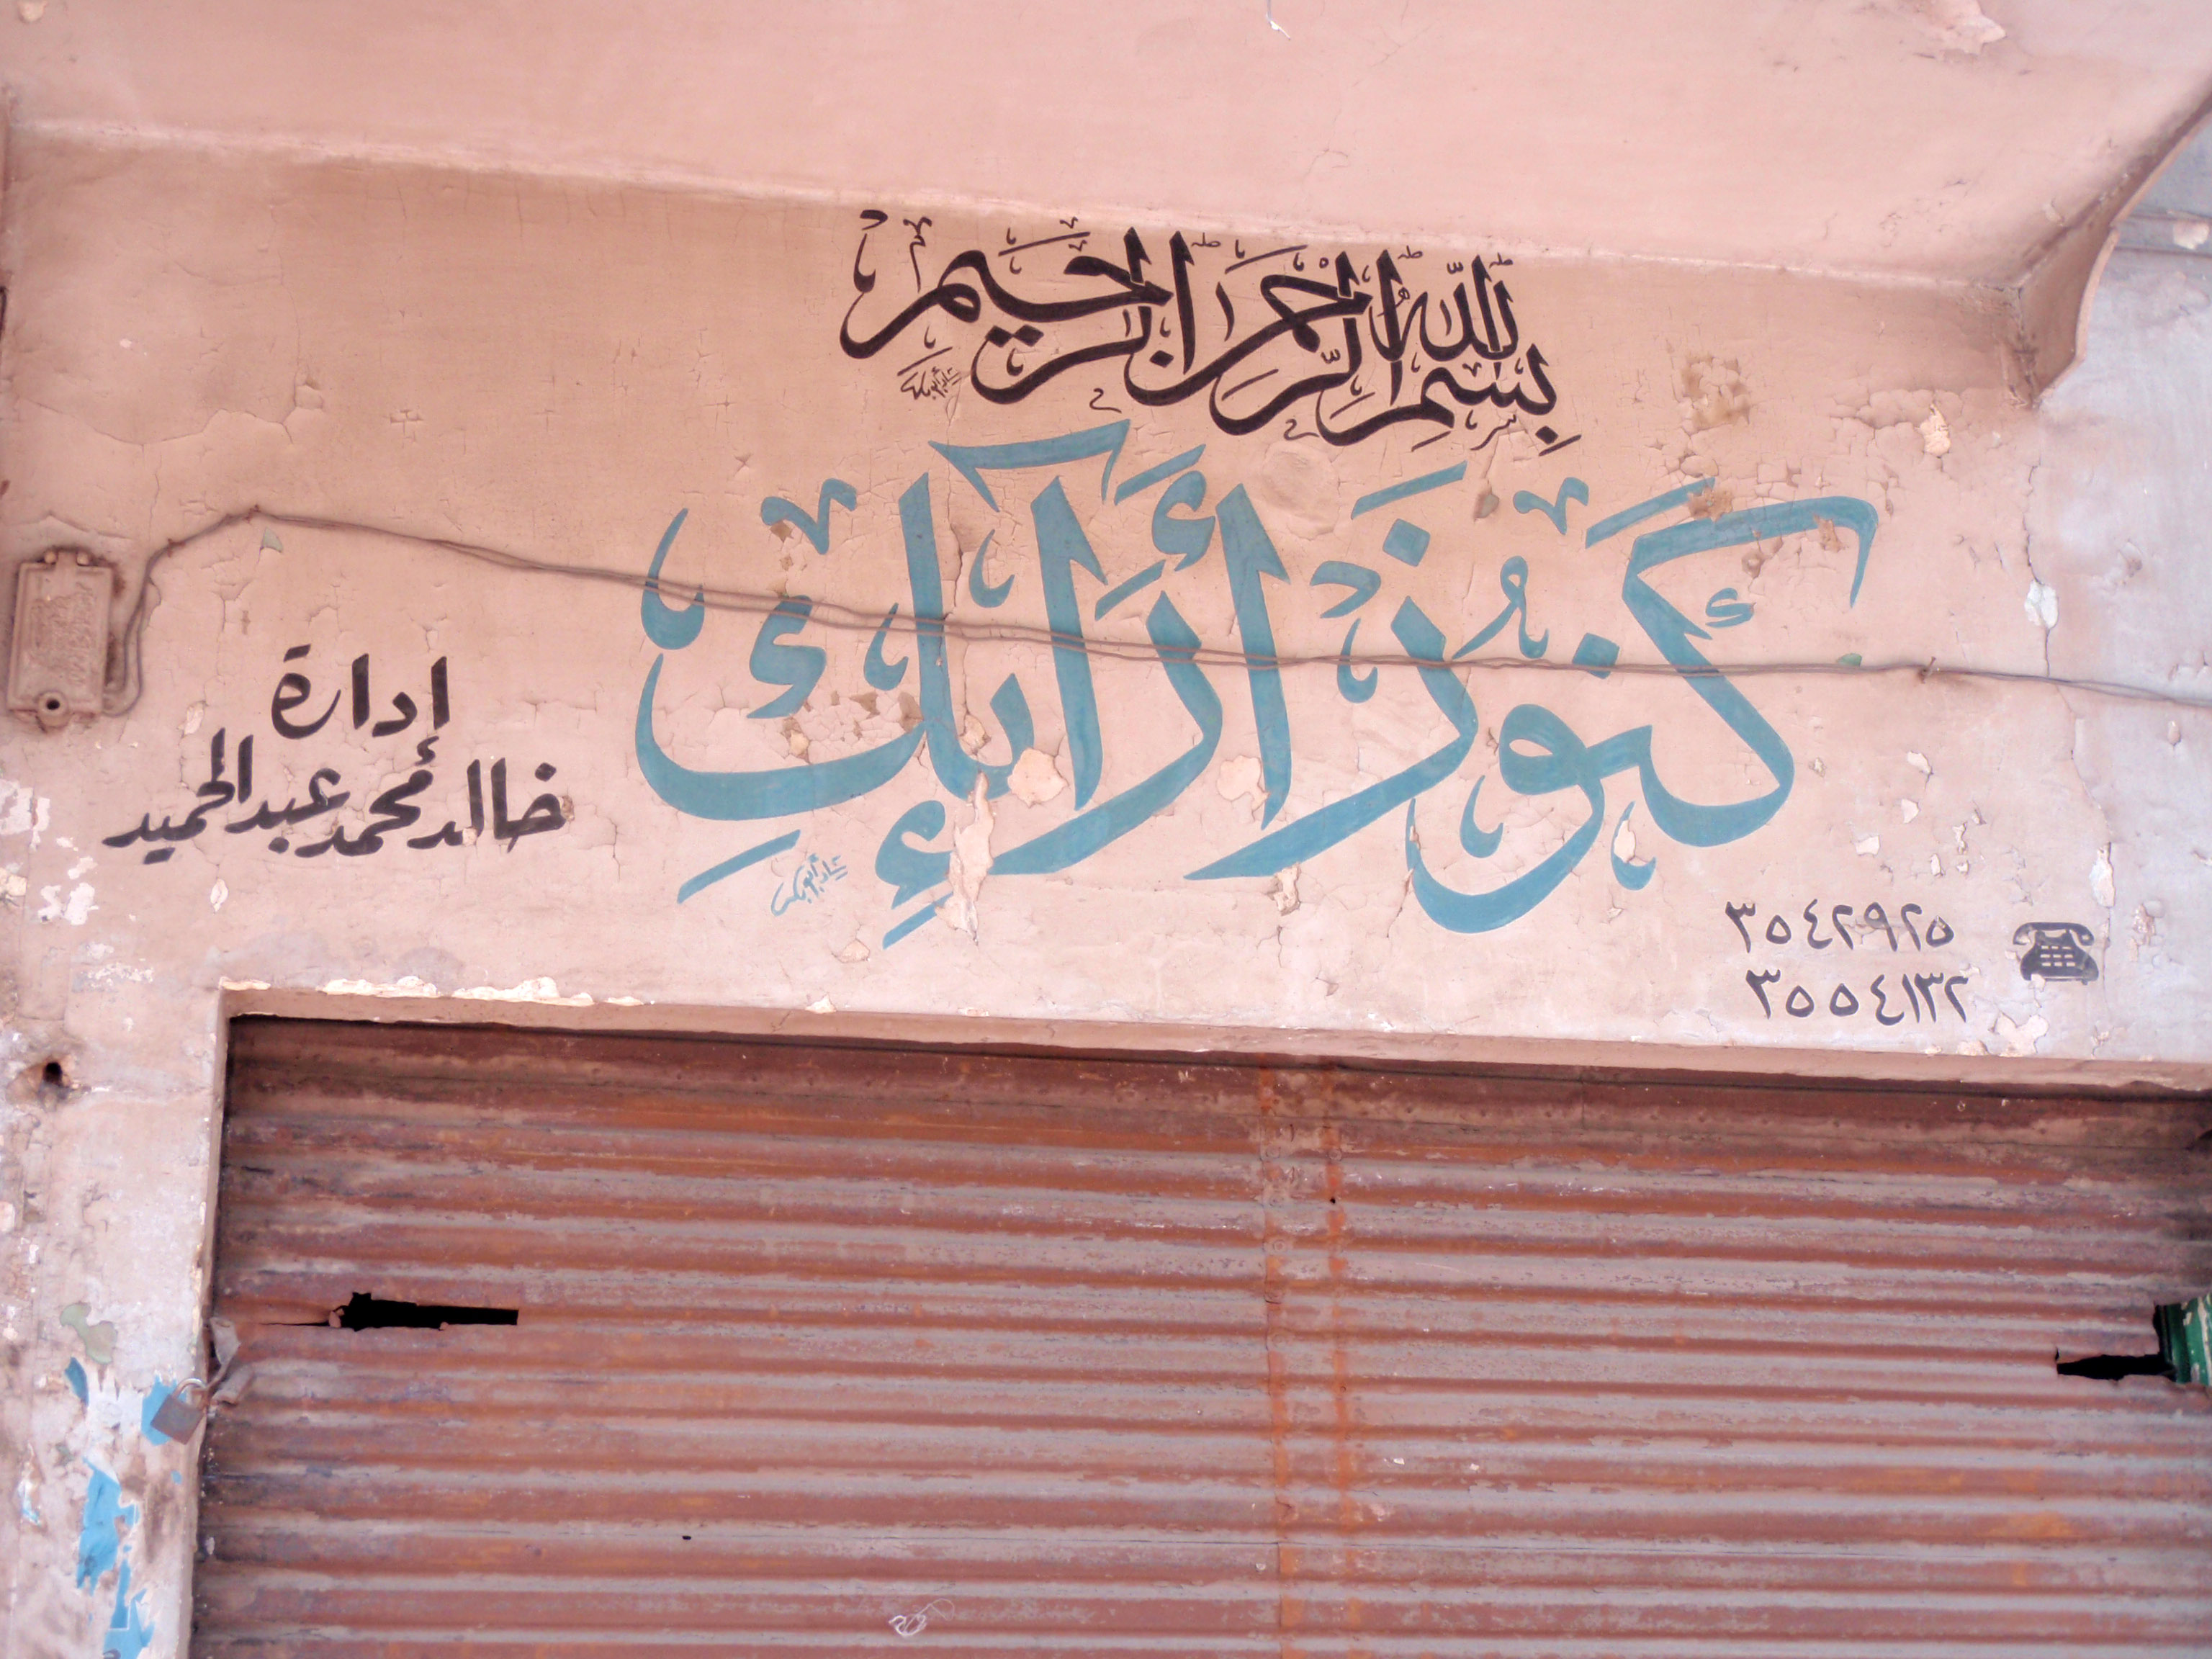 بِسْمِ اللّٰهِ الرَّحْمَنِ الرَّحِيمِ
كُنُوزَ أَرَآئِكِ
إدارة
خالد محمد عبدالحميد
٣٥٤٢٩٢٥
٣٥٥٤١٣٢